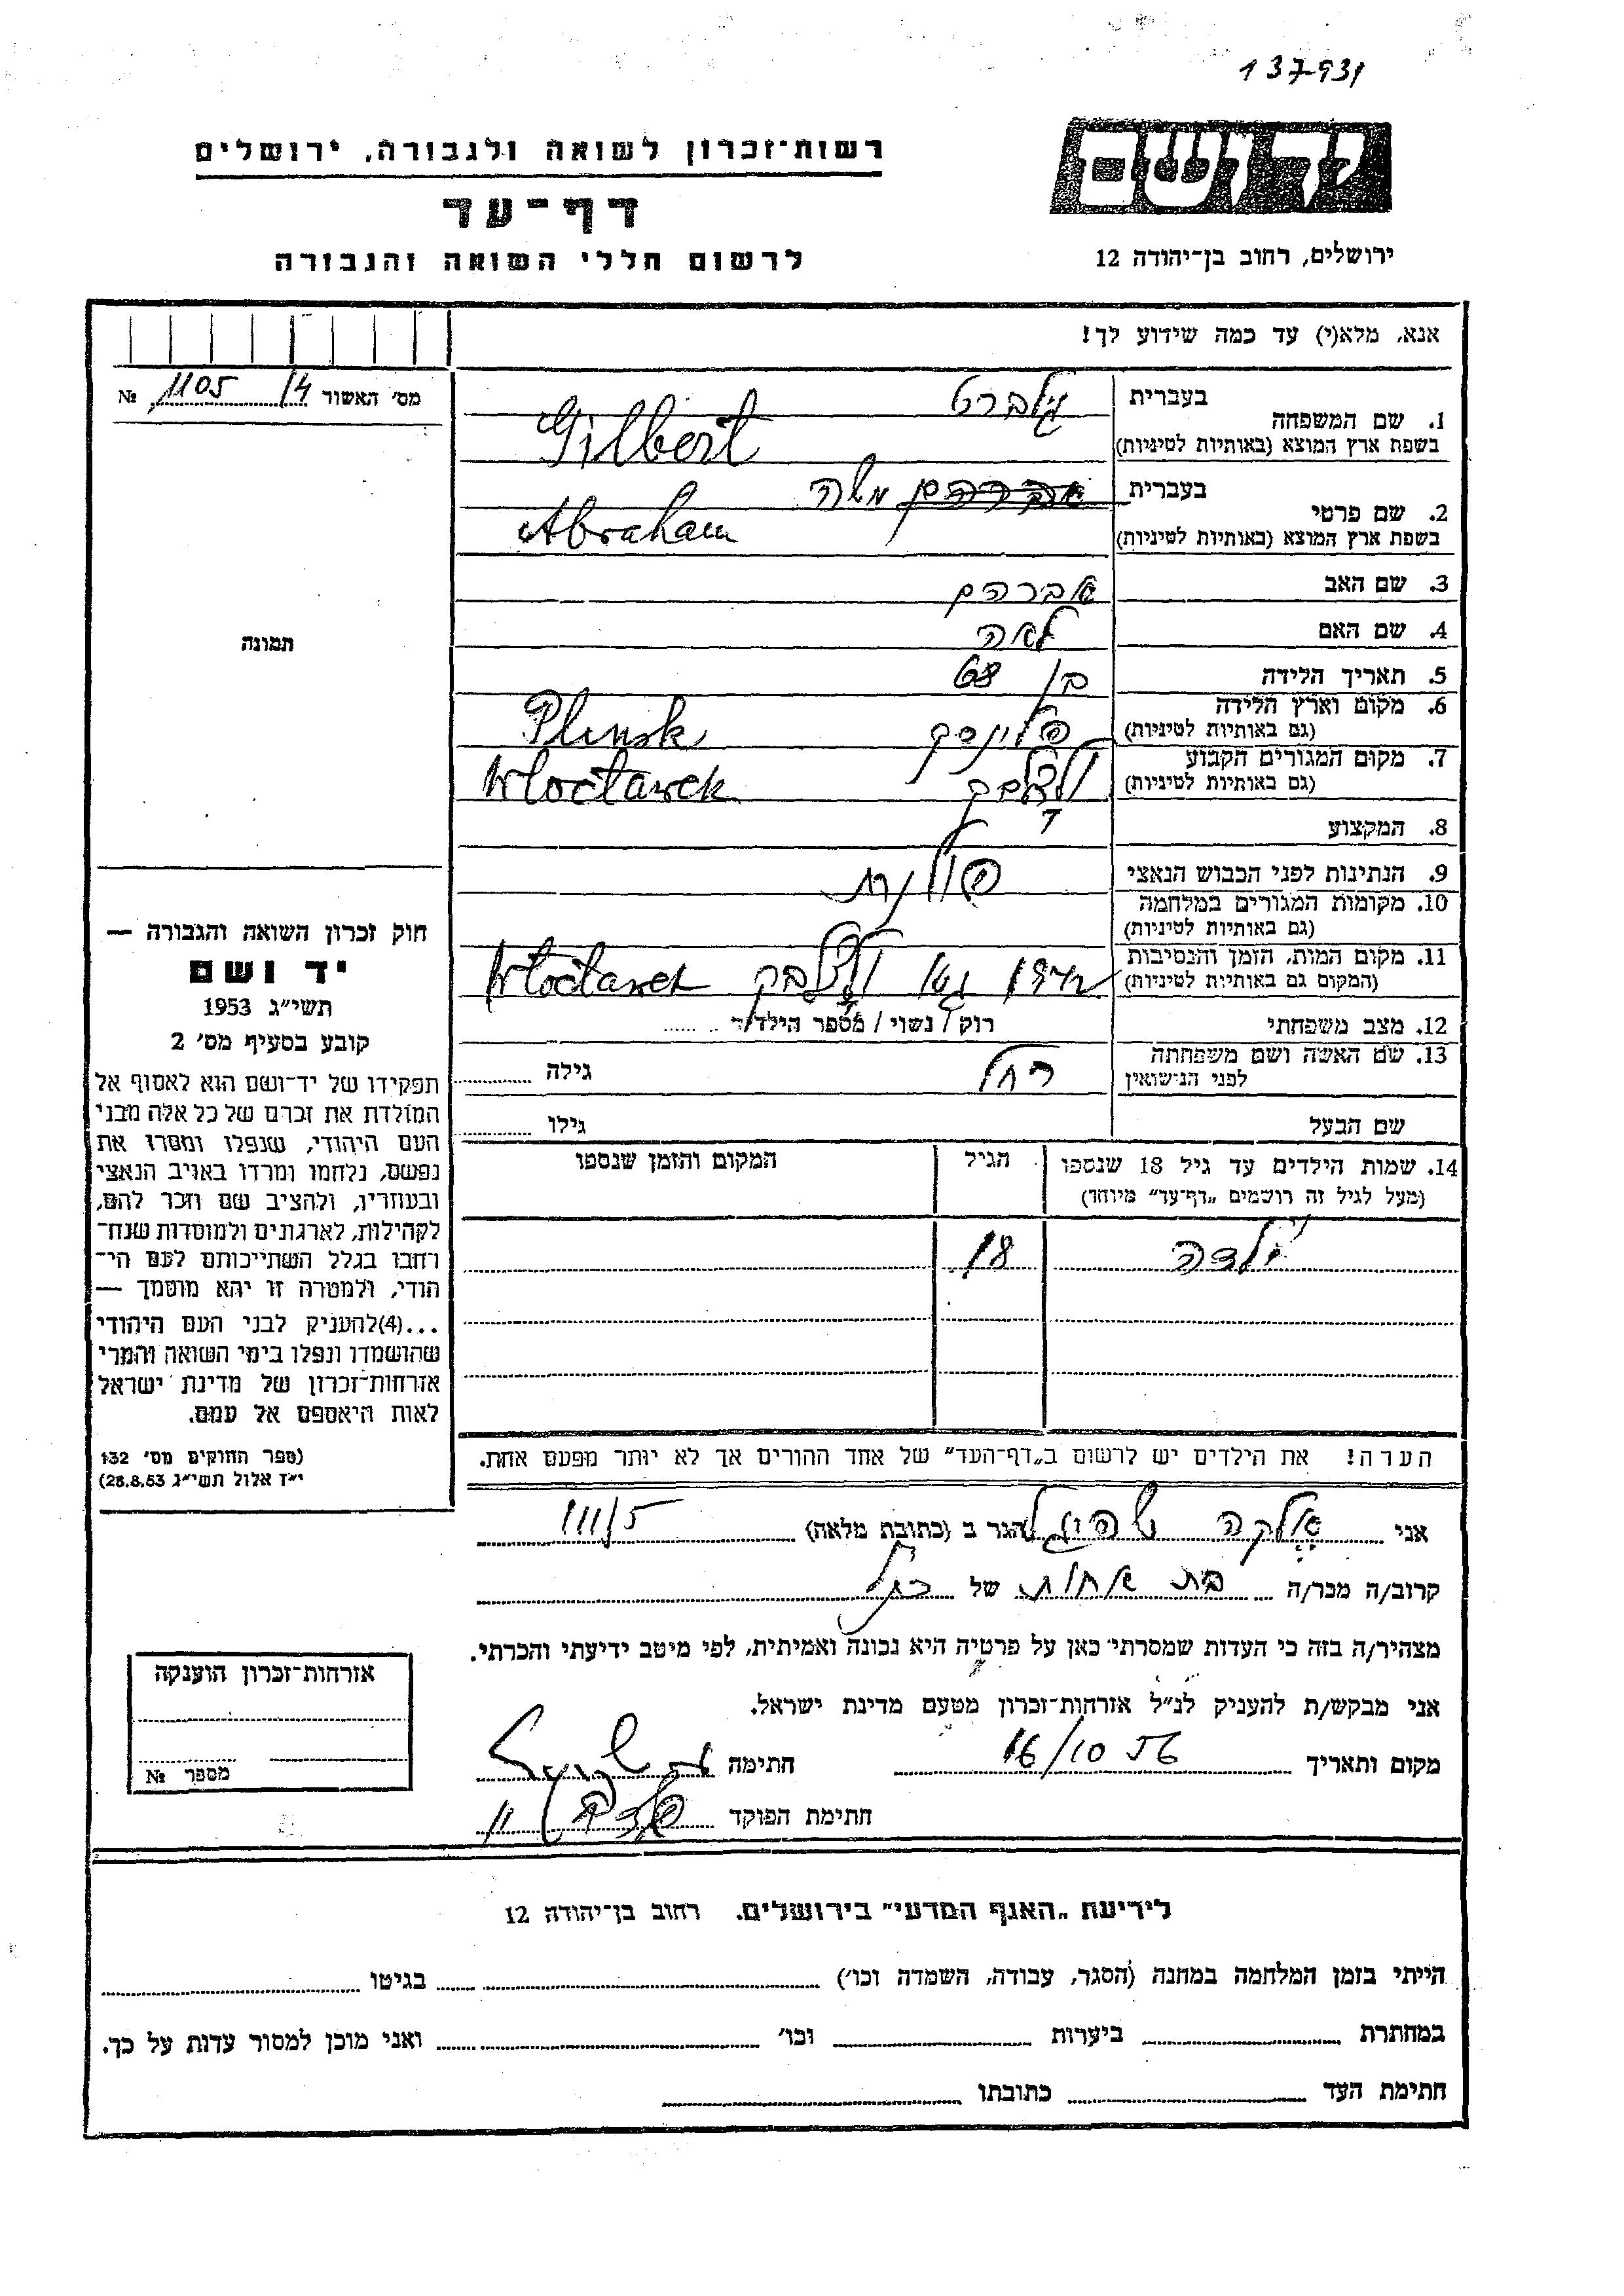 137931
רשות־זכרון לשואה ולגבורה, ירושלים
דף־עד
לרשום חללי השואה והגבורה
ירושלים, רחוב בן־יהודה 12
אנא, מלא(י) עד כמה שידוע לך!
מס׳ האשור 14 1105 №
תמונה
1. שם המשפחה
בעברית גילברט
בשפת ארץ המוצא (באותיות לטיניות) Gilbert
2. שם פרטי
בעברית אברהם משה
בשפת ארץ המוצא (באותיות לטיניות) Abraham
3. שם האב אברהם
4. שם האם לאה
5. תאריך הלידה בן 68
6. מקום וארץ הלידה
(גם באותיות לטיניות) פלינסק Plinsk
7. מקום המגורים הקבוע
(גם באותיות לטיניות) Wloclawek
8. המקצוע
9. הנתינות לפני הכבוש הנאצי פולנית
10. מקומות המגורים במלחמה
(גם באותיות לטיניות)
11. מקום המות, הזמן והנסיבות
(המקום גם באותיות לטיניות) גטו Wloclawek
12. מצב משפחתי רוק / נשוי / מספר הילדים
13. שם האשה ושם משפחתה
לפני הנישואין רחל גילה
שם הבעל גילו
14. שמות הילדים עד גיל 18 שנספו
(מעל לגיל זה רושמים „דף־עד״ מיוחד)
הגיל
המקום והזמן שנספו
ילדה 18
הערה! את הילדים יש לרשום ב„דף־העד״ של אחד ההורים אך לא יותר מפעם אחת.
חוק זכרון השואה והגבורה —
יד ושם
תשי״ג 1953
קובע בסעיף מס׳ 2
תפקידו של יד־ושם הוא לאסוף אל
המולדת את זכרם של כל אלה מבני
העם היהודי, שנפלו ומסרו את
נפשם, נלחמו ומרדו באויב הנאצי
ובעוזריו, ולהציב שם וזכר להם,
לקהילות, לארגונים ולמוסדות שנח־
רחבו בגלל השתייכותם לעם הי־
הודי, ולמטרה זו יהא מוסמך —
...(4)להעניק לבני העם היהודי
שהושמדו ונפלו בימי השואה והמרי
אזרחות־זכרון של מדינת ישראל
לאות היאספם אל עמם.
(ספר החוקים מס׳ 132
י״ז אלול תשי״ג 28.8.53)
אני אלקה שפיגל הגר ב (כתובת מלאה) 111/5
קרוב/ה מכר/ה בת אחות של
מצהיר/ה בזה כי העדות שמסרתי כאן על פרטיה היא נכונה ואמיתית, לפי מיטב ידיעתי והכרתי.
אני מבקש/ת להעניק לנ״ל אזרחות־זכרון מטעם מדינת ישראל.
מקום ותאריך 16/10 56 חתימה
חתימת הפוקד
אזרחות־זכרון הוענקה
מספר №
לידיעת „האגף המדעי״ בירושלים. רחוב בן־יהודה 12
הייתי בזמן המלחמה במחנה (הסגר, עבודה, השמדה וכו׳) בגיטו
במחתרת ביערות וכו׳ ואני מוכן למסור עדות על כך.
חתימת העד כתובתו